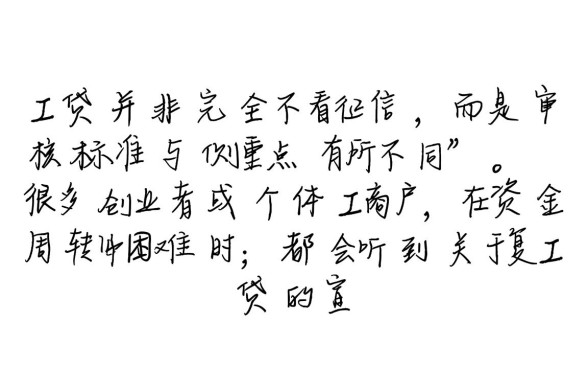 工贷并非完全不看征信，而是审
核标准与侧重点有所不同”。
很多创业者或个体工商户，在资金
周转困难时；都会听到关于复工
贷的宣